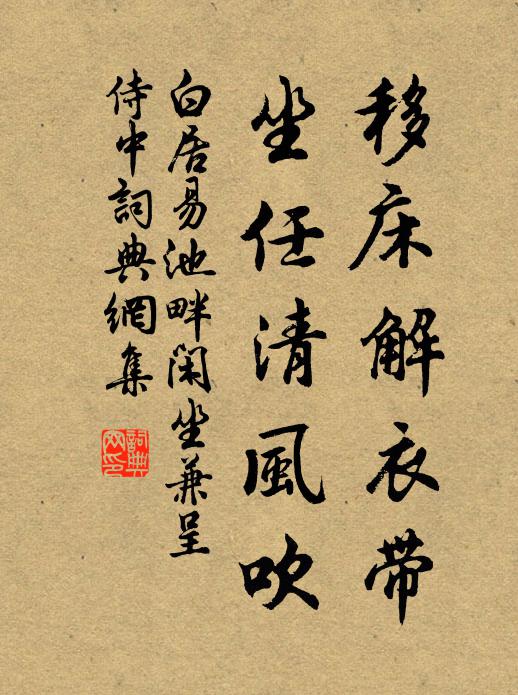 移床解衣带
坐任清風吹
白居易池畔闲坐兼呈
侍中詞典網集
詞典
网印